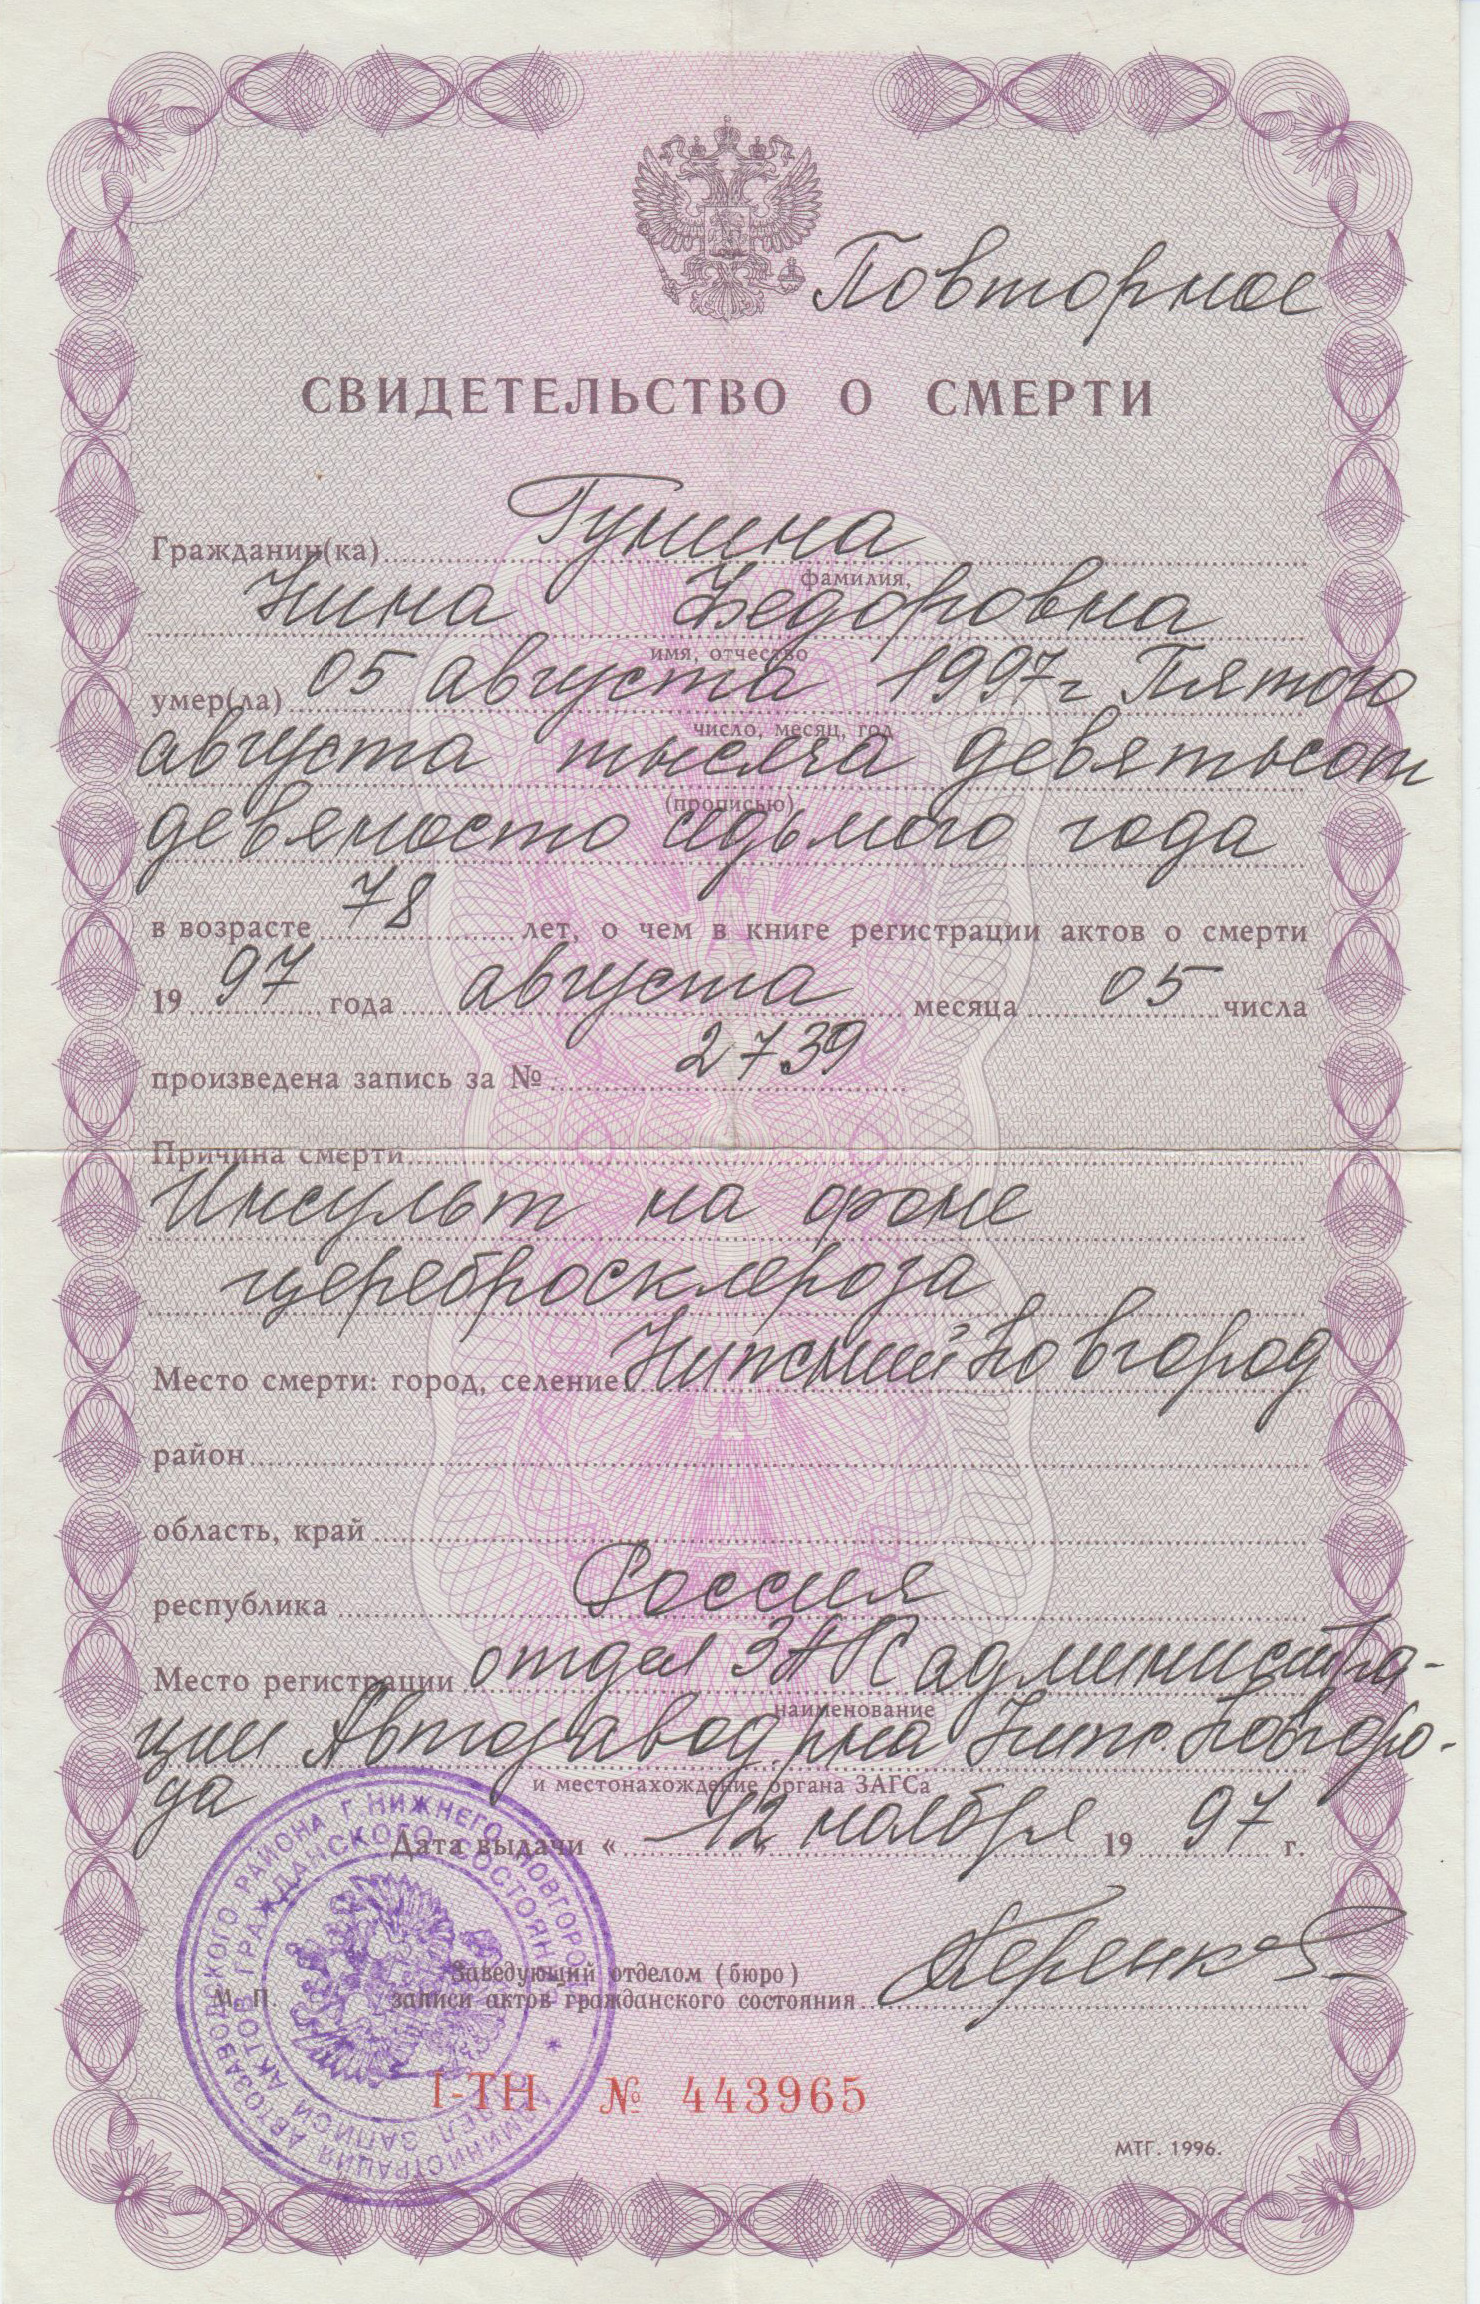 Повторное
СВИДЕТЕЛЬСТВО О СМЕРТИ
Гражданин(ка) Гунина
фамилия,
Нина Федоровна
имя, отчество
умер(ла) 05 августа 1997г Пятого
число, месяц, год
августа тысяча девятьсот
(прописью)
девяносто седьмого года
в возрасте 78 лет, о чем в книге регистрации актов о смерти
19 97 года августа месяца 05 числа
произведена запись за № 2739
Причина смерти
Инсульт на фоне
церебросклероза
Место смерти: город, селение Нижний Новгород
район
область, край
республика Россия
Место регистрации отдел ЗАГС администра-
наименование
ции Автозавод. р-на Нижн. Новгоро-
и местонахождение органа ЗАГСа
да
Дата выдачи « 12 » ноября 19 97 г.
Заведующий отделом (бюро)
М. П. записи актов гражданского состояния
I-ТН № 443965
МТГ. 1996.
АДМИНИСТРАЦИЯ АВТОЗАВОДСКОГО РАЙОНА Г. НИЖНЕГО НОВГОРОДА
ОТДЕЛ ЗАПИСИ АКТОВ ГРАЖДАНСКОГО СОСТОЯНИЯ